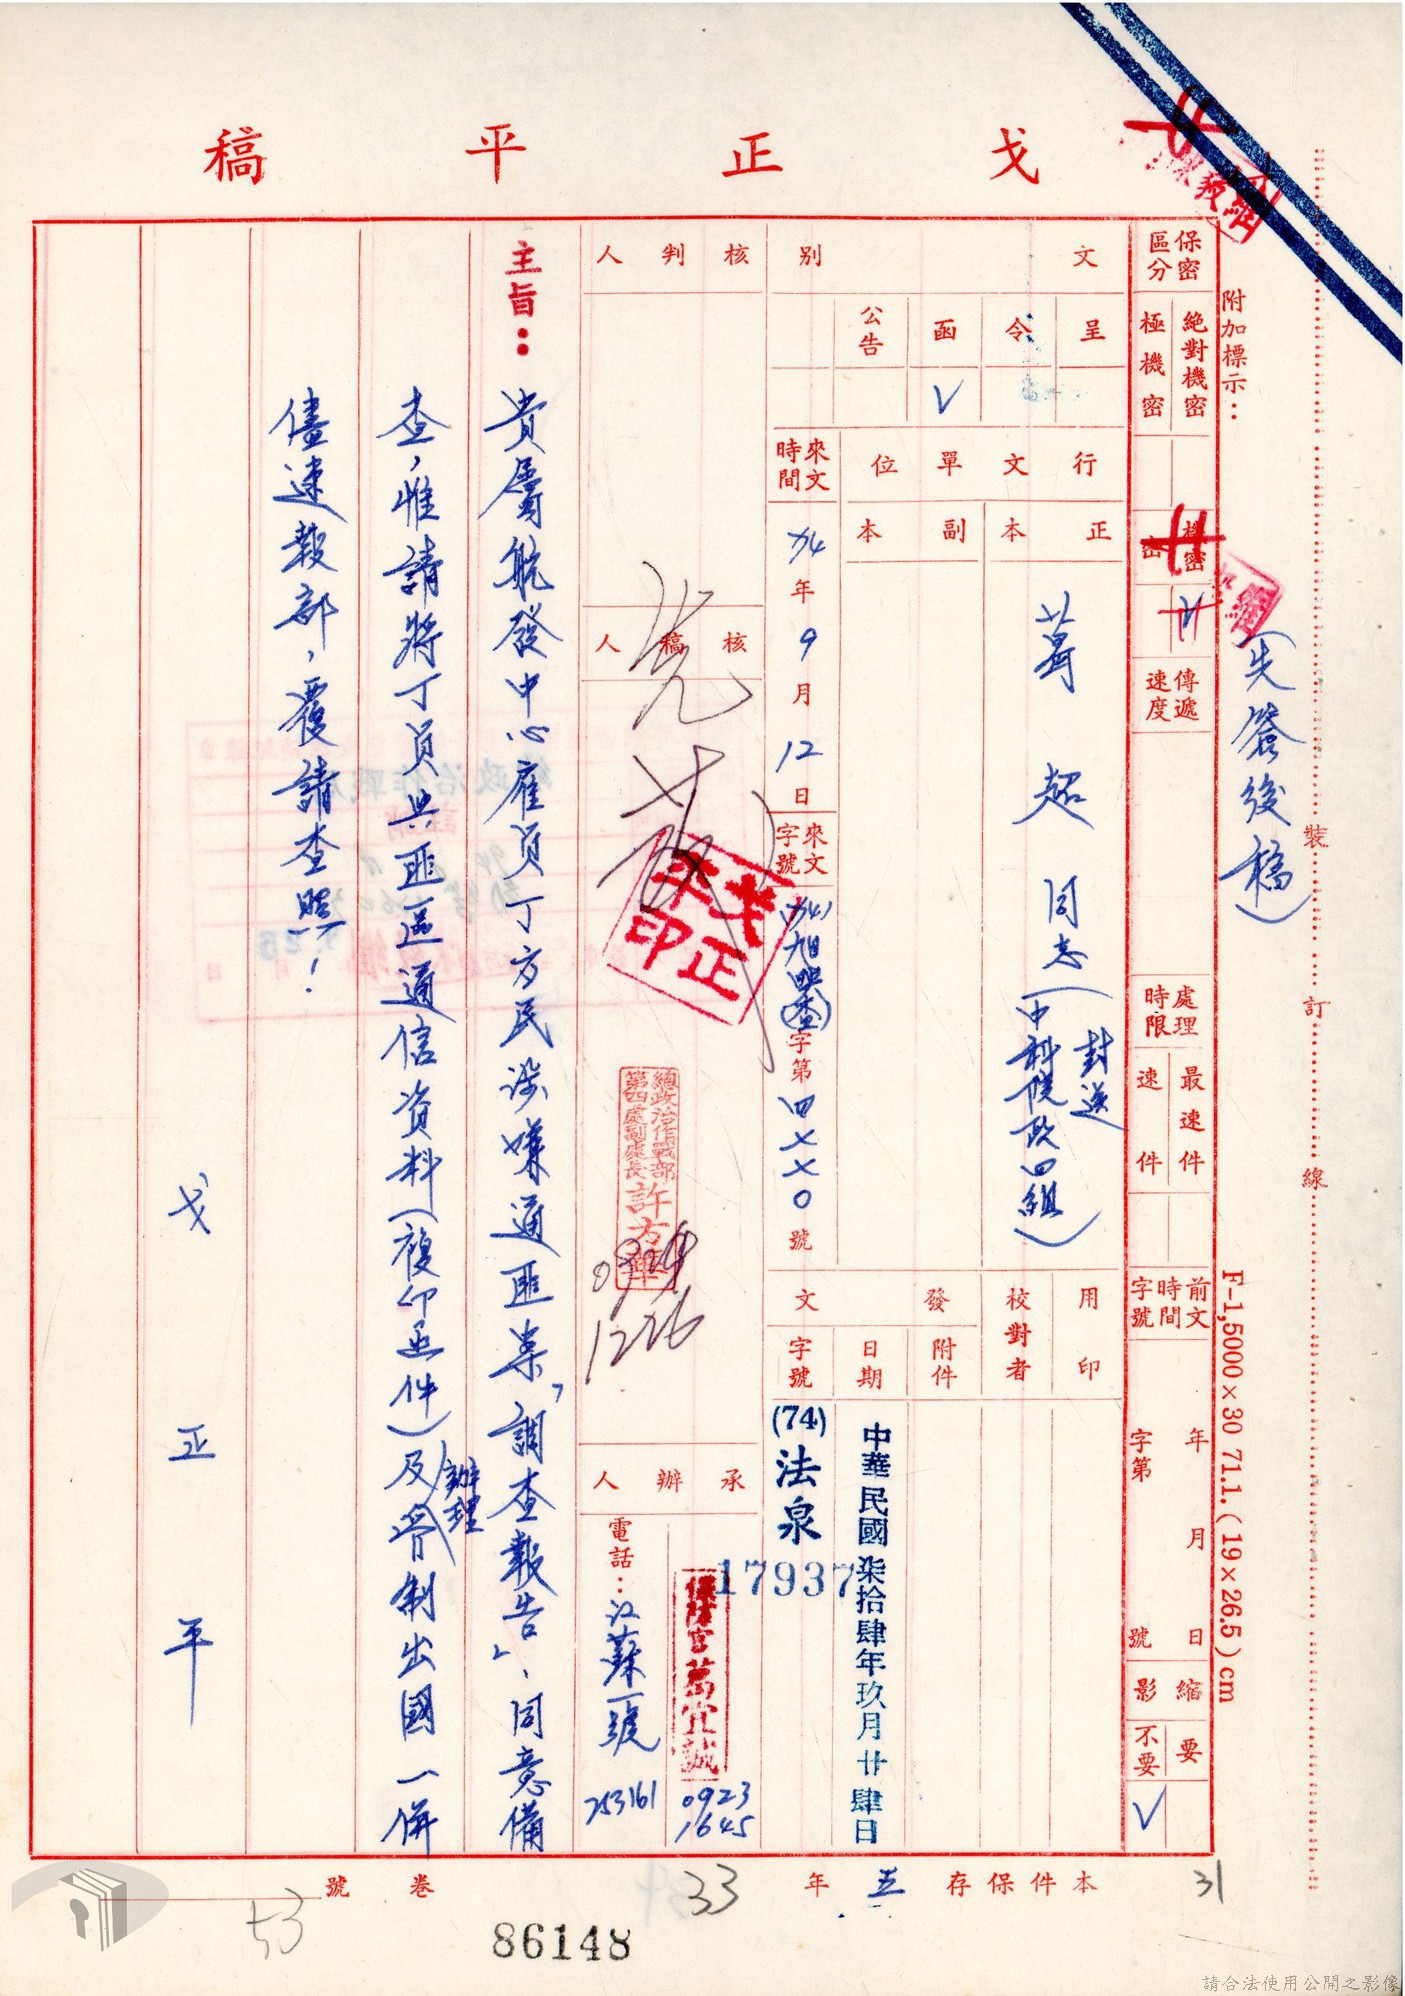 戈正平稿
附加標示：
(先簽後稿)
裝
訂
線
F-1,5000×30 71.1.(19×26.5)cm
保密區分
絕對機密
極機密
機密
密
傳遞速度
處理時限
最速件
速件
前文時間字號
年月日
字第
號
縮影
要
不要
V
文別
呈
令
函
公告
V
行文單位
正本
副本
葛超同志(中科院政四組)
封送
來文時間
74年9月12日
來文字號
(74)旭興(查)字第四七七〇號
用印
校對者
發文
附件
日期
字號
中華民國柒拾肆年玖月廿肆日
(74)法泉
17937
核判人
核稿人
戈正平印
總政治作戰部
第四處副處長許方華
0924
1226
承辦人
保防官萬宜誠
0923
1645
電話：
江蘇一號
253161
主旨：
貴屬航發中心雇員丁方民涉嫌通匪案，「調查報告」、同意備
查，惟請將丁員與匪區通信資料(複印乙件)及辦理管制出國一併
儘速報部，覆請查照！
戈正平
本件保存五年
卷號
31
33
53
86148
請合法使用公開之影像